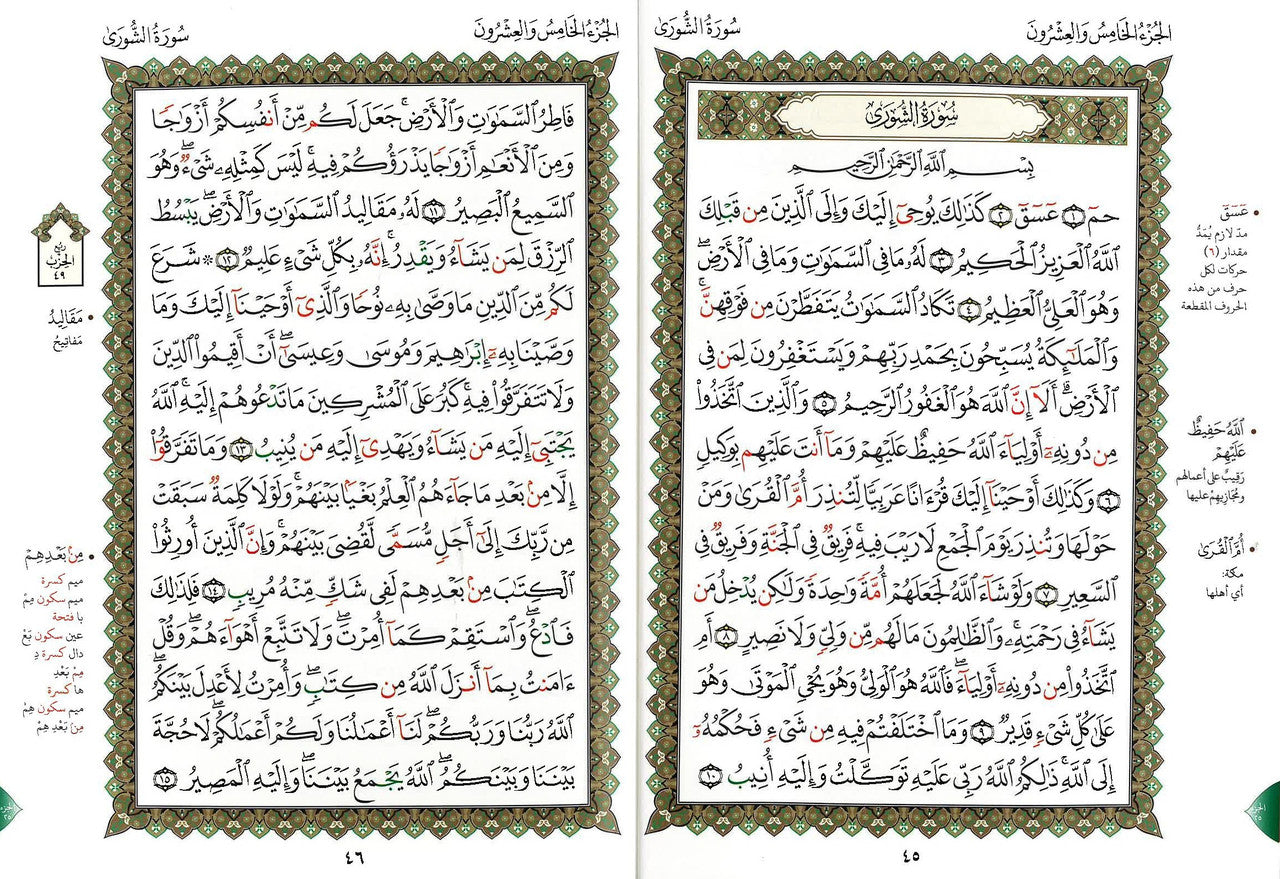 الجُزْءُ الخَامِسُ وَالعِشْرُونَ
سُورَةُ الشُّورَىٰ
سُورَةُ الشُّورَىٰ
بِسْمِ اللَّهِ الرَّحْمَٰنِ الرَّحِيمِ
حمٓ ١ عٓسٓقٓ ٢ كَذَٰلِكَ يُوحِىٓ إِلَيْكَ وَإِلَى ٱلَّذِينَ مِن قَبْلِكَ
ٱللَّهُ ٱلْعَزِيزُ ٱلْحَكِيمُ ٣ لَهُۥ مَا فِى ٱلسَّمَٰوَٰتِ وَمَا فِى ٱلْأَرْضِۖ
وَهُوَ ٱلْعَلِىُّ ٱلْعَظِيمُ ٤ تَكَادُ ٱلسَّمَٰوَٰتُ يَتَفَطَّرْنَ مِن فَوْقِهِنَّۚ
وَٱلْمَلَٰٓئِكَةُ يُسَبِّحُونَ بِحَمْدِ رَبِّهِمْ وَيَسْتَغْفِرُونَ لِمَن فِى
ٱلْأَرْضِۗ أَلَآ إِنَّ ٱللَّهَ هُوَ ٱلْغَفُورُ ٱلرَّحِيمُ ٥ وَٱلَّذِينَ ٱتَّخَذُوا۟
مِن دُونِهِۦٓ أَوْلِيَآءَ ٱللَّهُ حَفِيظٌ عَلَيْهِمْ وَمَآ أَنتَ عَلَيْهِم بِوَكِيلٍ
٦ وَكَذَٰلِكَ أَوْحَيْنَآ إِلَيْكَ قُرْءَانًا عَرَبِيًّا لِّتُنذِرَ أُمَّ ٱلْقُرَىٰ وَمَنْ
حَوْلَهَا وَتُنذِرَ يَوْمَ ٱلْجَمْعِ لَا رَيْبَ فِيهِۚ فَرِيقٌ فِى ٱلْجَنَّةِ وَفَرِيقٌ فِى
ٱلسَّعِيرِ ٧ وَلَوْ شَآءَ ٱللَّهُ لَجَعَلَهُمْ أُمَّةً وَٰحِدَةً وَلَٰكِن يُدْخِلُ مَن
يَشَآءُ فِى رَحْمَتِهِۦۚ وَٱلظَّٰلِمُونَ مَا لَهُم مِّن وَلِىٍّ وَلَا نَصِيرٍ ٨ أَمِ
ٱتَّخَذُوا۟ مِن دُونِهِۦٓ أَوْلِيَآءَۖ فَٱللَّهُ هُوَ ٱلْوَلِىُّ وَهُوَ يُحْىِ ٱلْمَوْتَىٰ وَهُوَ
عَلَىٰ كُلِّ شَىْءٍ قَدِيرٌ ٩ وَمَا ٱخْتَلَفْتُمْ فِيهِ مِن شَىْءٍ فَحُكْمُهُۥٓ
إِلَى ٱللَّهِۚ ذَٰلِكُمُ ٱللَّهُ رَبِّى عَلَيْهِ تَوَكَّلْتُ وَإِلَيْهِ أُنِيبُ ١٠
عٓسٓقٓ
مدّ لازم يُمَدُّ
مقدار (٦)
حركات لكل
حرف من هذه
الحروف المقطعة
ٱللَّهُ حَفِيظٌ
عَلَيْهِمْ
رَقيبٌ على أعمالهم
ومُجازيهمْ عليها
أُمَّ ٱلْقُرَىٰ
مكة:
أي أهلها
الجزء
٢٥
٤٥
الجُزْءُ الخَامِسُ وَالعِشْرُونَ
سُورَةُ الشُّورَىٰ
فَاطِرُ ٱلسَّمَٰوَٰتِ وَٱلْأَرْضِۚ جَعَلَ لَكُم مِّنْ أَنفُسِكُمْ أَزْوَٰجًا
وَمِنَ ٱلْأَنْعَٰمِ أَزْوَٰجًا يَذْرَؤُكُمْ فِيهِۚ لَيْسَ كَمِثْلِهِۦ شَىْءٌۖ وَهُوَ
ٱلسَّمِيعُ ٱلْبَصِيرُ ١١ لَهُۥ مَقَالِيدُ ٱلسَّمَٰوَٰتِ وَٱلْأَرْضِۖ يَبْسُطُ
ٱلرِّزْقَ لِمَن يَشَآءُ وَيَقْدِرُۚ إِنَّهُۥ بِكُلِّ شَىْءٍ عَلِيمٌ ١٢ * شَرَعَ
لَكُم مِّنَ ٱلدِّينِ مَا وَصَّىٰ بِهِۦ نُوحًا وَٱلَّذِىٓ أَوْحَيْنَآ إِلَيْكَ وَمَا
وَصَّيْنَا بِهِۦٓ إِبْرَٰهِيمَ وَمُوسَىٰ وَعِيسَىٰٓۖ أَنْ أَقِيمُوا۟ ٱلدِّينَ
وَلَا تَتَفَرَّقُوا۟ فِيهِۚ كَبُرَ عَلَى ٱلْمُشْرِكِينَ مَا تَدْعُوهُمْ إِلَيْهِۚ ٱللَّهُ
يَجْتَبِىٓ إِلَيْهِ مَن يَشَآءُ وَيَهْدِىٓ إِلَيْهِ مَن يُنِيبُ ١٣ وَمَا تَفَرَّقُوٓا۟
إِلَّا مِنۢ بَعْدِ مَا جَآءَهُمُ ٱلْعِلْمُ بَغْيًۢا بَيْنَهُمْۚ وَلَوْلَا كَلِمَةٌ سَبَقَتْ
مِن رَّبِّكَ إِلَىٰٓ أَجَلٍ مُّسَمًّى لَّقُضِىَ بَيْنَهُمْۚ وَإِنَّ ٱلَّذِينَ أُورِثُوا۟
ٱلْكِتَٰبَ مِنۢ بَعْدِهِمْ لَفِى شَكٍّ مِّنْهُ مُرِيبٍ ١٤ فَلِذَٰلِكَ
فَٱدْعُۖ وَٱسْتَقِمْ كَمَآ أُمِرْتَۖ وَلَا تَتَّبِعْ أَهْوَآءَهُمْۖ وَقُلْ
ءَامَنتُ بِمَآ أَنزَلَ ٱللَّهُ مِن كِتَٰبٍۖ وَأُمِرْتُ لِأَعْدِلَ بَيْنَكُمُۖ
ٱللَّهُ رَبُّنَا وَرَبُّكُمْۖ لَنَآ أَعْمَٰلُنَا وَلَكُمْ أَعْمَٰلُكُمْۖ لَا حُجَّةَ
بَيْنَنَا وَبَيْنَكُمُۖ ٱللَّهُ يَجْمَعُ بَيْنَنَاۖ وَإِلَيْهِ ٱلْمَصِيرُ ١٥
ربع
الحزب
٤٩
مَقَالِيدُ
مَفاتِيحُ
مِنۢ بَعْدِهِمْ
ميم كسرة
ميم سكون مِمْ
با فتحة
عين سكون بَعْ
دال كسرة دِ
مِمْ بَعْدِ
ها كسرة
ميم سكون هِمْ
مِنۢ بَعْدِ هِمْ
الجزء
٢٥
٤٦